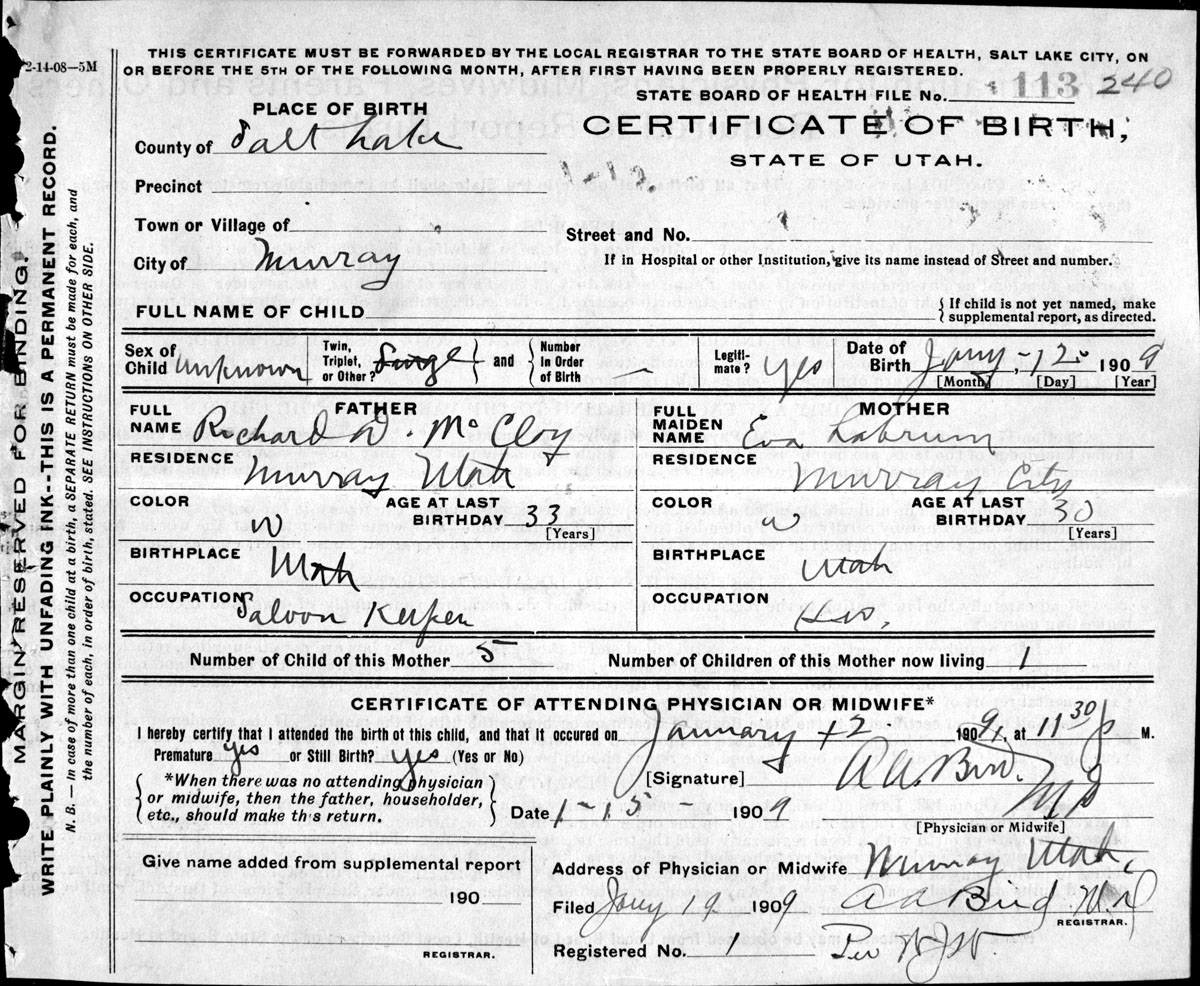 2-14-08—5M
THIS CERTIFICATE MUST BE FORWARDED BY THE LOCAL REGISTRAR TO THE STATE BOARD OF HEALTH, SALT LAKE CITY, ON
OR BEFORE THE 5TH OF THE FOLLOWING MONTH, AFTER FIRST HAVING BEEN PROPERLY REGISTERED.
STATE BOARD OF HEALTH FILE No. 113 240
PLACE OF BIRTH
CERTIFICATE OF BIRTH,
STATE OF UTAH.
County of Salt Lake
Precinct
Town or Village of
Street and No.
City of Murray
If in Hospital or other Institution, give its name instead of Street and number.
FULL NAME OF CHILD
{ If child is not yet named, make
supplemental report, as directed.
Sex of Child Unknown
Twin, Triplet, or Other? } and { Number In Order of Birth —
Legiti-mate? yes
Date of Birth Jany - 12 1909
[Month] [Day] [Year]
FATHER
FULL NAME Richard D. McCloy
RESIDENCE Murray Utah
COLOR W
AGE AT LAST BIRTHDAY 33
[Years]
BIRTHPLACE Utah
OCCUPATION Saloon Keeper
MOTHER
FULL MAIDEN NAME Eva Labrum
RESIDENCE Murray City
COLOR W
AGE AT LAST BIRTHDAY 30
[Years]
BIRTHPLACE Utah
OCCUPATION H.W.
Number of Child of this Mother 5
Number of Children of this Mother now living 1
CERTIFICATE OF ATTENDING PHYSICIAN OR MIDWIFE*
I hereby certify that I attended the birth of this child, and that it occured on January 12 1909, at 11 30 P M.
Premature yes or Still Birth? yes (Yes or No)
*When there was no attending physician
or midwife, then the father, householder,
etc., should make this return.
[Signature] A A Bird MD
Date 1-15 1909
[Physician or Midwife]
Give name added from supplemental report
190
REGISTRAR.
Address of Physician or Midwife Murray Utah
Filed Jany 19 1909 A A Bird M.D
REGISTRAR.
Registered No. 1 Per
MARGIN RESERVED FOR BINDING.
WRITE PLAINLY WITH UNFADING INK--THIS IS A PERMANENT RECORD.
N. B.—In case of more than one child at a birth, a SEPARATE RETURN must be made for each, and
the number of each, in order of birth, stated. SEE INSTRUCTIONS ON OTHER SIDE.